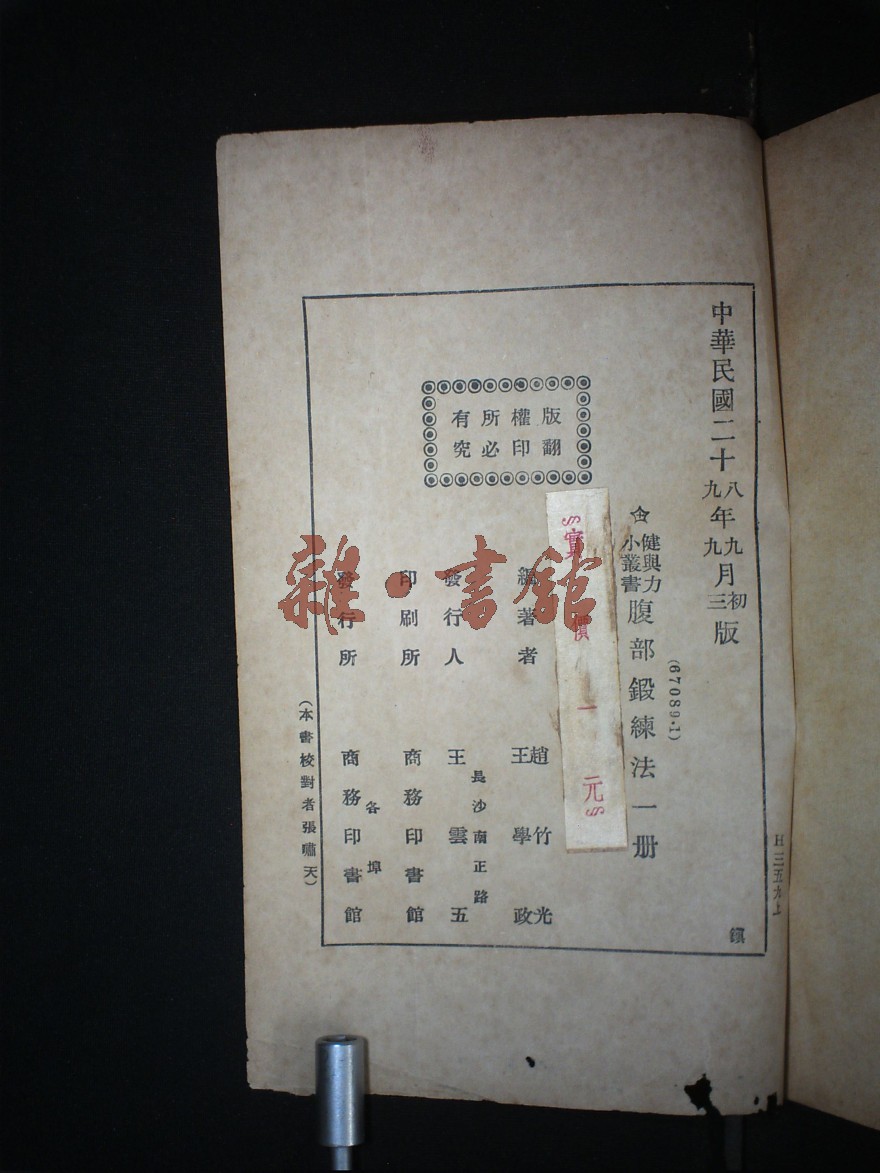 中華民國二十八年九月初版
九九三
(67089·1)
健與力小叢書
腹部鍛練法一册
實價一元
版權所有
翻印必究
編著者 趙竹光 王學政
發行人 王雲五
長沙南正路
印刷所 商務印書館
發行所 商務印書館
各埠
(本書校對者張嘯天)
雜·書館